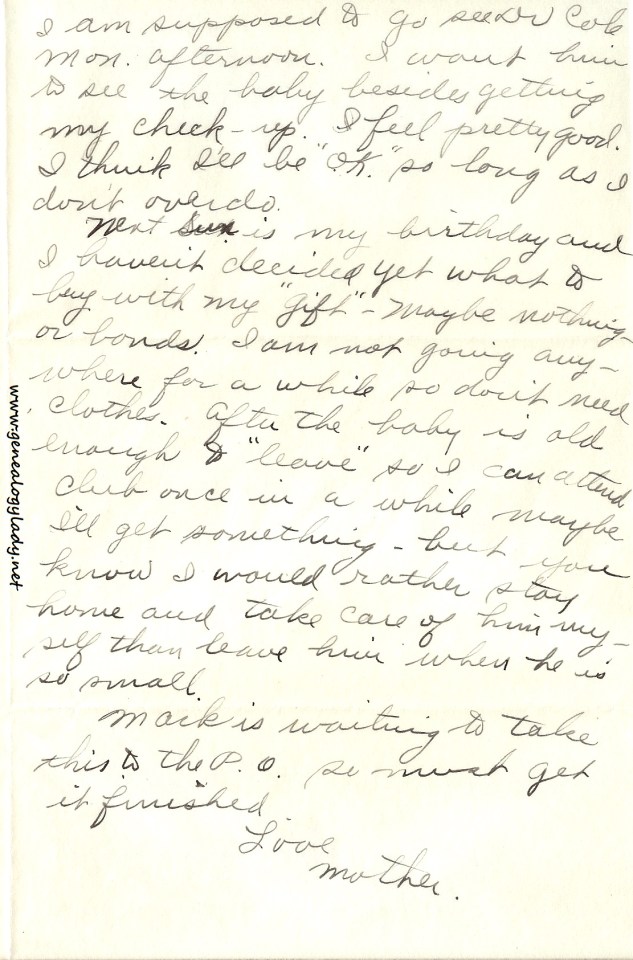 I am supposed to go see Dr Cole
Mon. afternoon. I want him
to see the baby besides getting
my check-up. I feel pretty good.
I think I'll be "OK." so long as I
don't overdo.
Next Sun is my birthday and
I haven't decided yet what to
buy with my "gift" - Maybe nothing -
or bonds. I am not going any-
where for a while so don't need
clothes. After the baby is old
enough to "leave" so I can attend
Club once in a while maybe
I'll get something - but you
know I would rather stay
home and take care of him my-
self than leave him when he is
so small.
Mack is waiting to take
this to the P.O. so must get
it finished
Love
Mother.
www.genealogylady.net